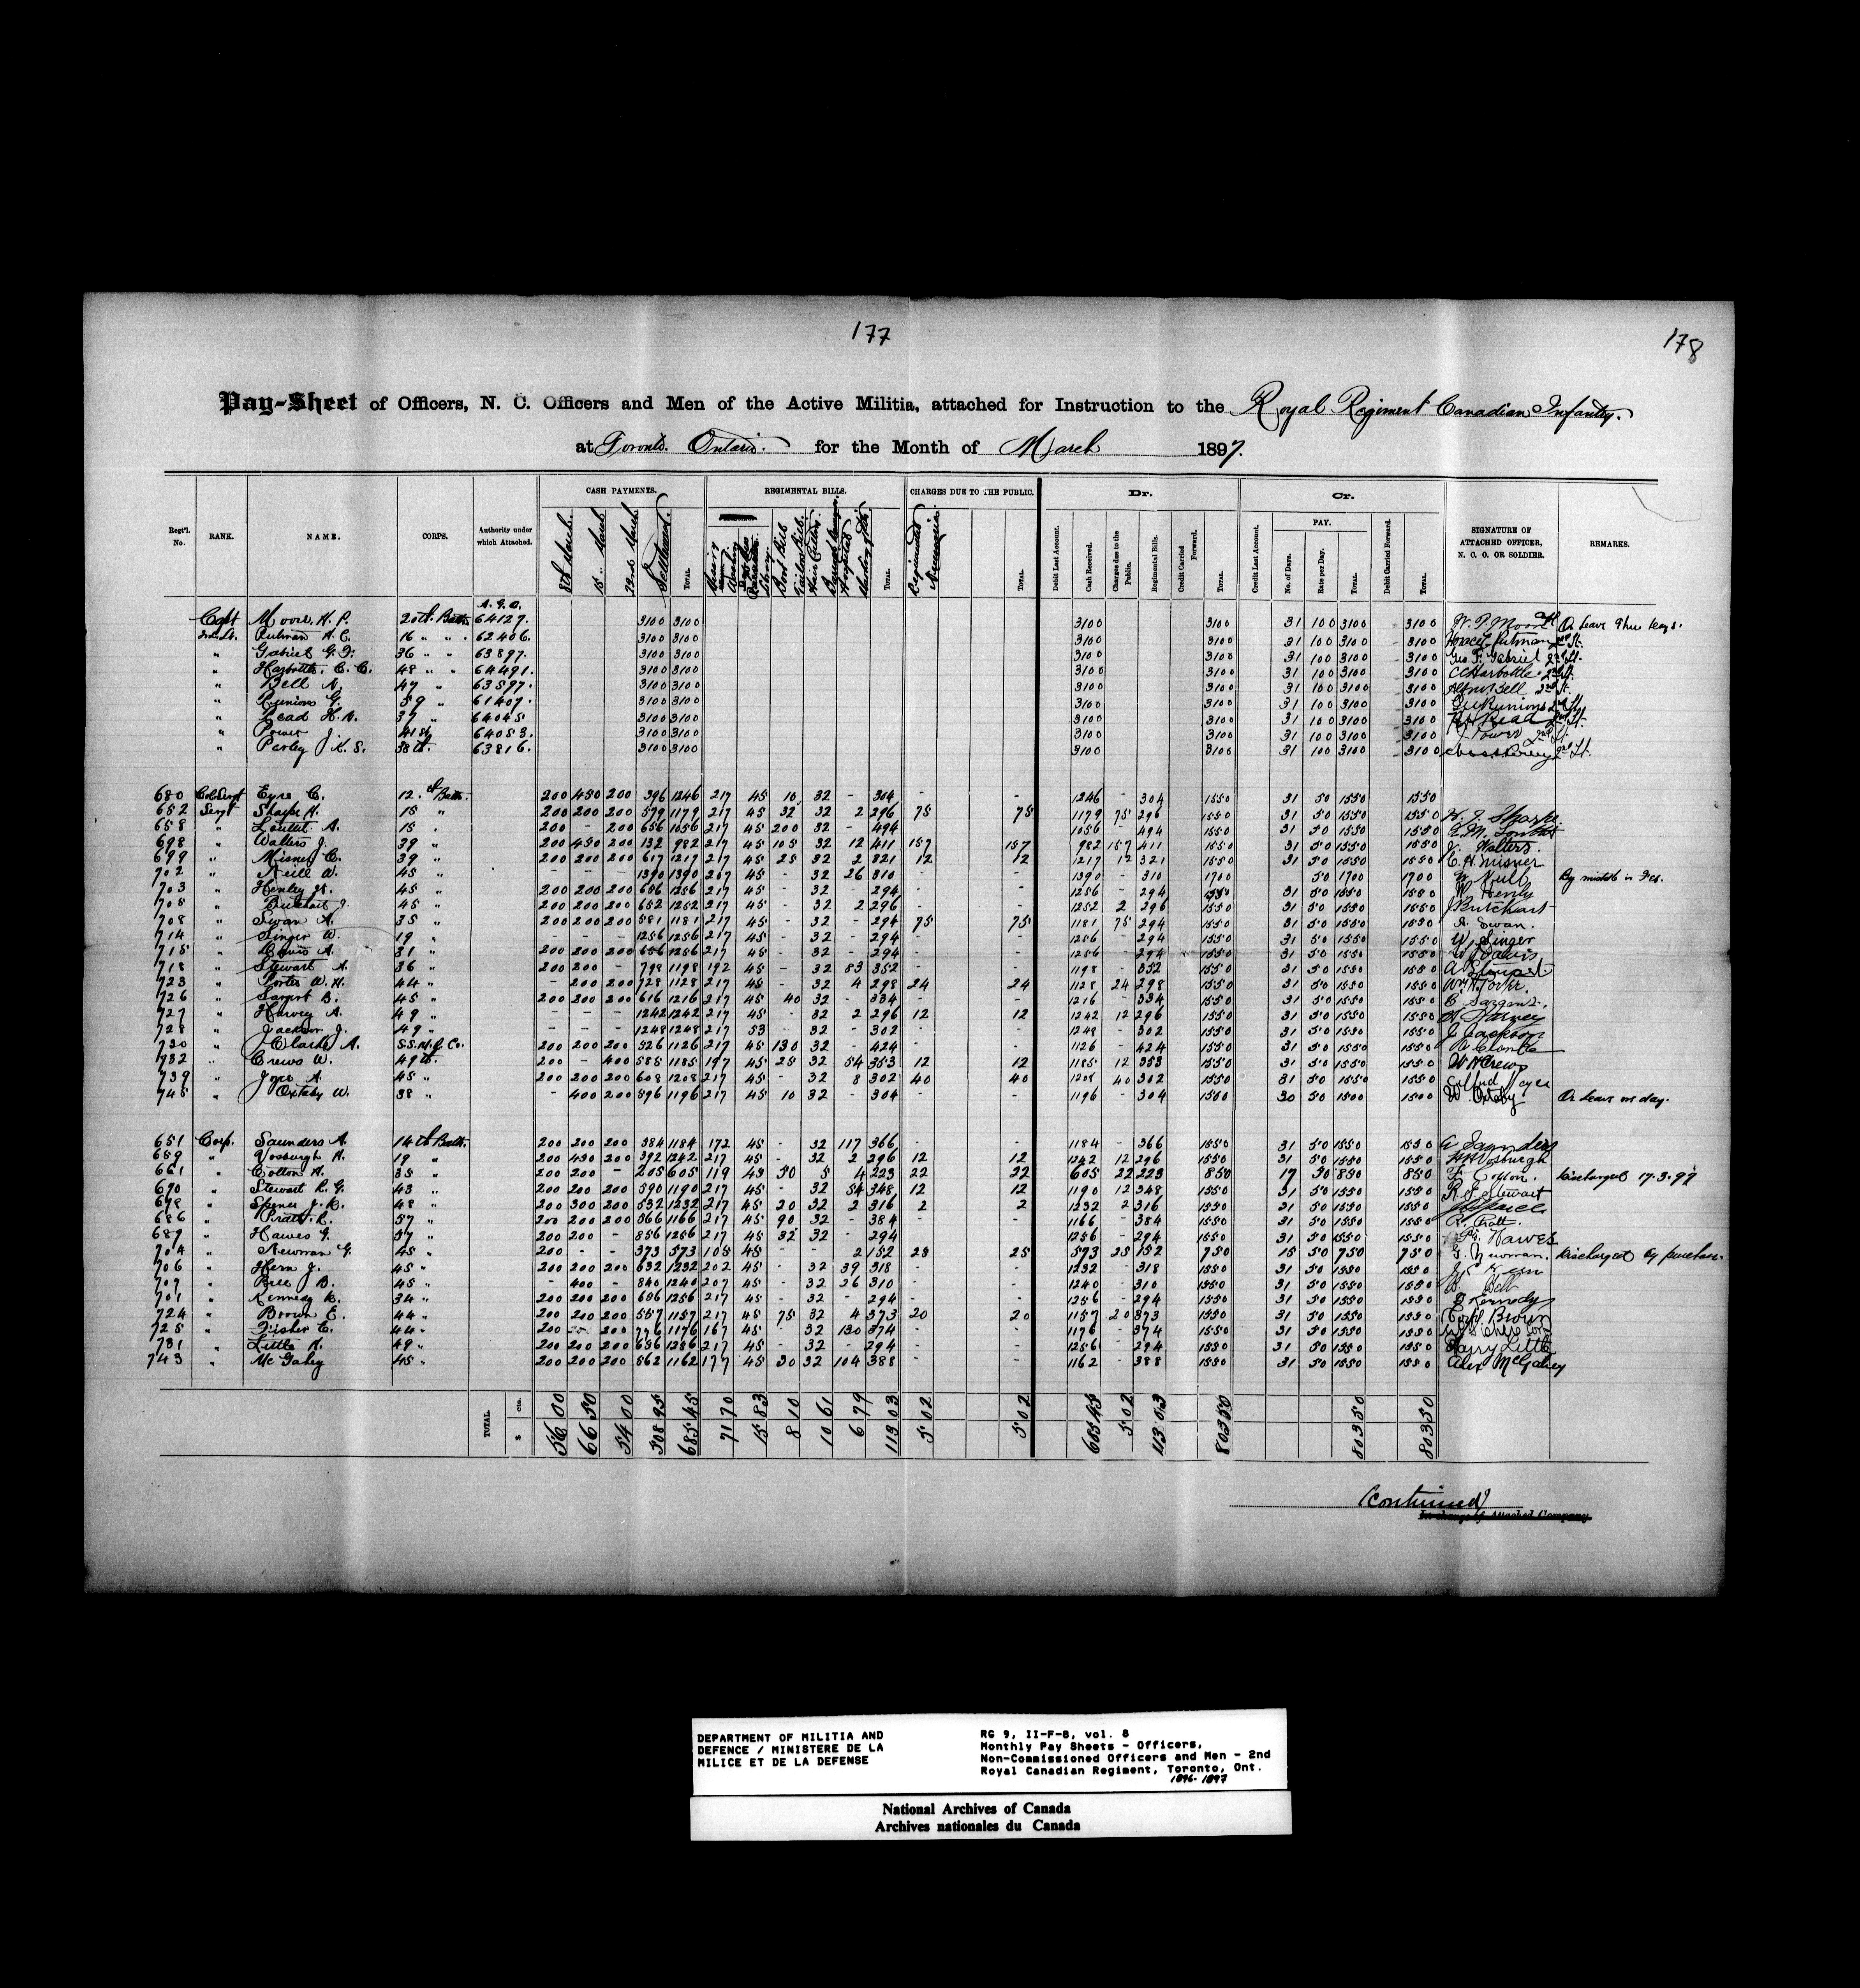 177
178
Pay-Sheet of Officers, N. C. Officers and Men of the Active Militia, attached for Instruction to the Royal Regiment Canadian Infantry.
at Toronto. Ontario. for the Month of March 1897.
Regt'l. No. RANK. NAME. CORPS. Authority under which Attached. CASH PAYMENTS. REGIMENTAL BILLS. CHARGES DUE TO THE PUBLIC. Dr. Cr. SIGNATURE OF ATTACHED OFFICER, N. C. O. OR SOLDIER. REMARKS.
8th March. 15" March 22nd March Settlement. TOTAL Library Boot Bills Tailors Bills. Hair Cutting. TOTAL Regimental Necessaries. TOTAL Debit Last Account. Cash Received. Charges due to the Public. Regimental Bills. Credit Carried Forward. TOTAL Credit Last Account. PAY. No. of Days. Rate per Day. TOTAL Debit Carried Forward. TOTAL
A.G.O.
Capt Moore. H. P. 20th. Battn. 64127. 3100 3100 3100 3100 31 100 3100 3100 On leave
2nd Lt. Putman H. C. 16 " " 62406. 3100 3100 3100 3100 31 100 3100 3100 Horace Putman 2nd Lt.
" Gabriel G. F. 36 " " 63897. 3100 3100 3100 3100 31 100 3100 3100 Geo F. Gabriel 2nd Lt.
" Harbottle. C. C. 48 " " 64491. 3100 3100 3100 3100 31 100 3100 3100 CCHarbottle 2nd Lt.
" Bell A. 47 " 63597. 3100 3100 3100 3100 31 100 3100 3100 Bell 2nd Lt.
" Runions G. 59 " 61407. 3100 3100 3100 3100 31 100 3100 3100 Runions 2nd Lt.
" Read H. A. 37 " 64045 3100 3100 3100 3100 31 100 3100 3100 Read 2nd Lt.
" Power 41st 64053. 3100 3100 3100 3100 31 100 3100 3100 J Power 2nd Lt.
" Parley J. K. S. 38th. 63816. 3100 3100 3100 3100 31 100 3100 3100 2nd Lt.
680 Col Sergt Eyre C. 12. Battn. 200 450 200 396 1246 217 45 10 32 - 304 - - 1246 - 304 1550 31 50 1550 1550
652 Sergt Sharpe H. 15 " 200 200 200 579 1179 217 45 32 2 296 75 75 1179 75 296 1550 31 50 1550 1550 Sharpe
658 " Louttit. A. 15 200 - 200 656 1056 217 45 200 32 - 494 - - 1056 - 494 1550 31 50 1550 1550
698 " Walters J. 39 " 200 450 200 132 982 217 45 105 32 12 411 157 157 982 157 411 1550 31 50 1550 1550 J. Walters.
699 " Misner C. 39 " 200 200 200 617 1217 217 45 25 32 2 321 12 12 1217 12 321 1550 31 50 1550 1550 C. H. Misner
702 " Neill W. 45 " - - - 1390 1390 207 45 - 32 26 310 - - 1390 - 310 1700 50 1700 1700 W Neill By mistake in Feb.
703 " Henley W. 45 " 200 200 200 656 1256 217 45 - 32 - 294 - - 1256 - 294 1550 31 50 1550 1550 W Henly
705 " Butchart J. 45 " 200 200 200 652 1252 217 45 - 32 2 296 - - 1252 2 296 1550 31 50 1550 1550 J Butchart
708 " Swan A. 35 " 200 200 200 581 1181 217 45 - 32 - 294 75 75 1181 75 294 1550 31 50 1550 1550 A. Swan.
714 " Singer W. 19 - - - 1256 1256 217 45 - 32 - 294 - - 1256 - 294 1550 31 50 1550 1550 W Singer
715 " Davis A. 31 " 200 200 200 656 1256 217 45 - 32 - 294 - - 1256 - 294 1550 31 50 1550 1550 Davis
718 " Stewart A. 36 " 200 200 - 798 1198 192 45 - 32 83 352 - - 1198 - 352 1550 31 50 1550 1550 A Stewart
723 " Porter W. H. 44 " - 200 200 728 1128 217 45 - 32 4 298 24 24 1128 24 298 1550 31 50 1550 1550 Wm H. Porter.
726 " Sargent B. 45 " 200 200 200 616 1216 217 45 40 32 - 334 - - 1216 - 334 1550 31 50 1550 1550 Sargent.
727 " Harvey A. 49 " - - - 1242 1242 217 45 - 32 2 296 12 12 1242 12 296 1550 31 50 1550 1550 A Harvey
728 " Jackson J. 49 " - - - 1248 1248 217 53 - 32 - 302 - - 1248 - 302 1550 31 50 1550 1550 J Jackson
730 " Clarke A. Co. 200 200 200 526 1126 217 45 130 32 - 424 - - 1126 - 424 1550 31 50 1550 1550
732 " Crews W. 49th. 200 - 400 585 1185 197 45 25 32 54 353 12 12 1185 12 353 1550 31 50 1550 1550 W Crews
739 " Joyce A. 45 " 200 200 200 608 1208 217 45 - 32 8 302 40 40 1208 40 302 1550 31 50 1550 1550 Joyce
745 " Oxtaby W. 38 " - 400 200 596 1196 217 45 10 32 - 304 - - 1196 - 304 1500 30 50 1500 1500 W. On leave one day.
651 Corp. Saunders A. 14th Battn. 200 200 200 584 1184 172 45 - 32 117 366 - - 1184 - 366 1550 31 50 1550 1550 A Saunders
659 " Vosburgh H. 19 " 200 450 200 392 1242 217 45 - 32 2 296 12 12 1242 12 296 1550 31 50 1550 1550 Vosburgh
661 " Cotton H. 35 " 200 200 - 205 605 119 45 50 5 4 223 22 22 605 22 223 850 17 50 850 850 Cotton. Discharged 17.3.97
670 " Stewart R. G. 43 " 200 200 200 590 1190 217 45 - 32 54 348 12 12 1190 12 348 1550 31 50 1550 1550 Stewart
678 " Spence J. 48 " 200 300 200 532 1232 217 45 20 32 2 316 2 2 1232 2 316 1550 31 50 1550 1550
686 " Pratt. R. 57 " 200 200 200 566 1166 217 45 90 32 - 384 - - 1166 - 384 1550 31 50 1550 1550 R. Pratt.
689 " Hawes G. 57 " 200 200 - 856 1256 217 45 32 - 294 1256 - 294 1550 31 50 1550 1550 Hawes
704 " Newman G. 45 " 200 - - 373 573 105 45 - - 2 152 25 25 573 25 152 750 15 50 750 750 G. Newman. Discharged by purchase.
706 " Hern J. 45 " 200 200 200 632 1232 202 45 - 32 39 318 - - 1232 - 318 1550 31 50 1550 1550
707 " Bell B. 45 " - 400 - 840 1240 207 45 - 32 26 310 - - 1240 - 310 1550 31 50 1550 1550 Bell
701 " Kennedy 34 " 200 200 200 656 1256 217 45 - 32 - 294 - - 1256 - 294 1550 31 50 1550 1550 Kennedy
724 " Brown E. 44 " 200 200 200 557 1157 217 45 75 32 4 373 20 20 1157 20 373 1550 31 50 1550 1550 Brown
725 " Fisher C. 44 " 200 - 200 776 1176 167 45 32 130 374 - - 1176 - 374 1550 31 50 1550 1550
731 " Little H. 49 " 200 200 200 656 1256 217 45 - 32 - 294 - - 1256 - 294 1550 31 50 1550 1550 Harry Little
743 " McGahey 45 " 200 200 200 562 1162 177 45 30 32 104 388 - - 1162 - 388 1550 31 50 1550 1550 Alex McGahey
TOTAL $ cts. 56 00 66 50 54 00 508 95 685 45 71 70 15 83 8 10 10 61 6 79 113 03 5 02 5 02 685 45 5 02 113 03 803 50 803 50 803 50
(Continued)
In charge of Attached Company.
DEPARTMENT OF MILITIA AND
DEFENCE / MINISTERE DE LA
MILICE ET DE LA DEFENSE
RG 9, II-F-8, vol. 8
Monthly Pay Sheets - Officers,
Non-Commissioned Officers and Men - 2nd
Royal Canadian Regiment, Toronto, Ont.
1896-1897
National Archives of Canada
Archives nationales du Canada